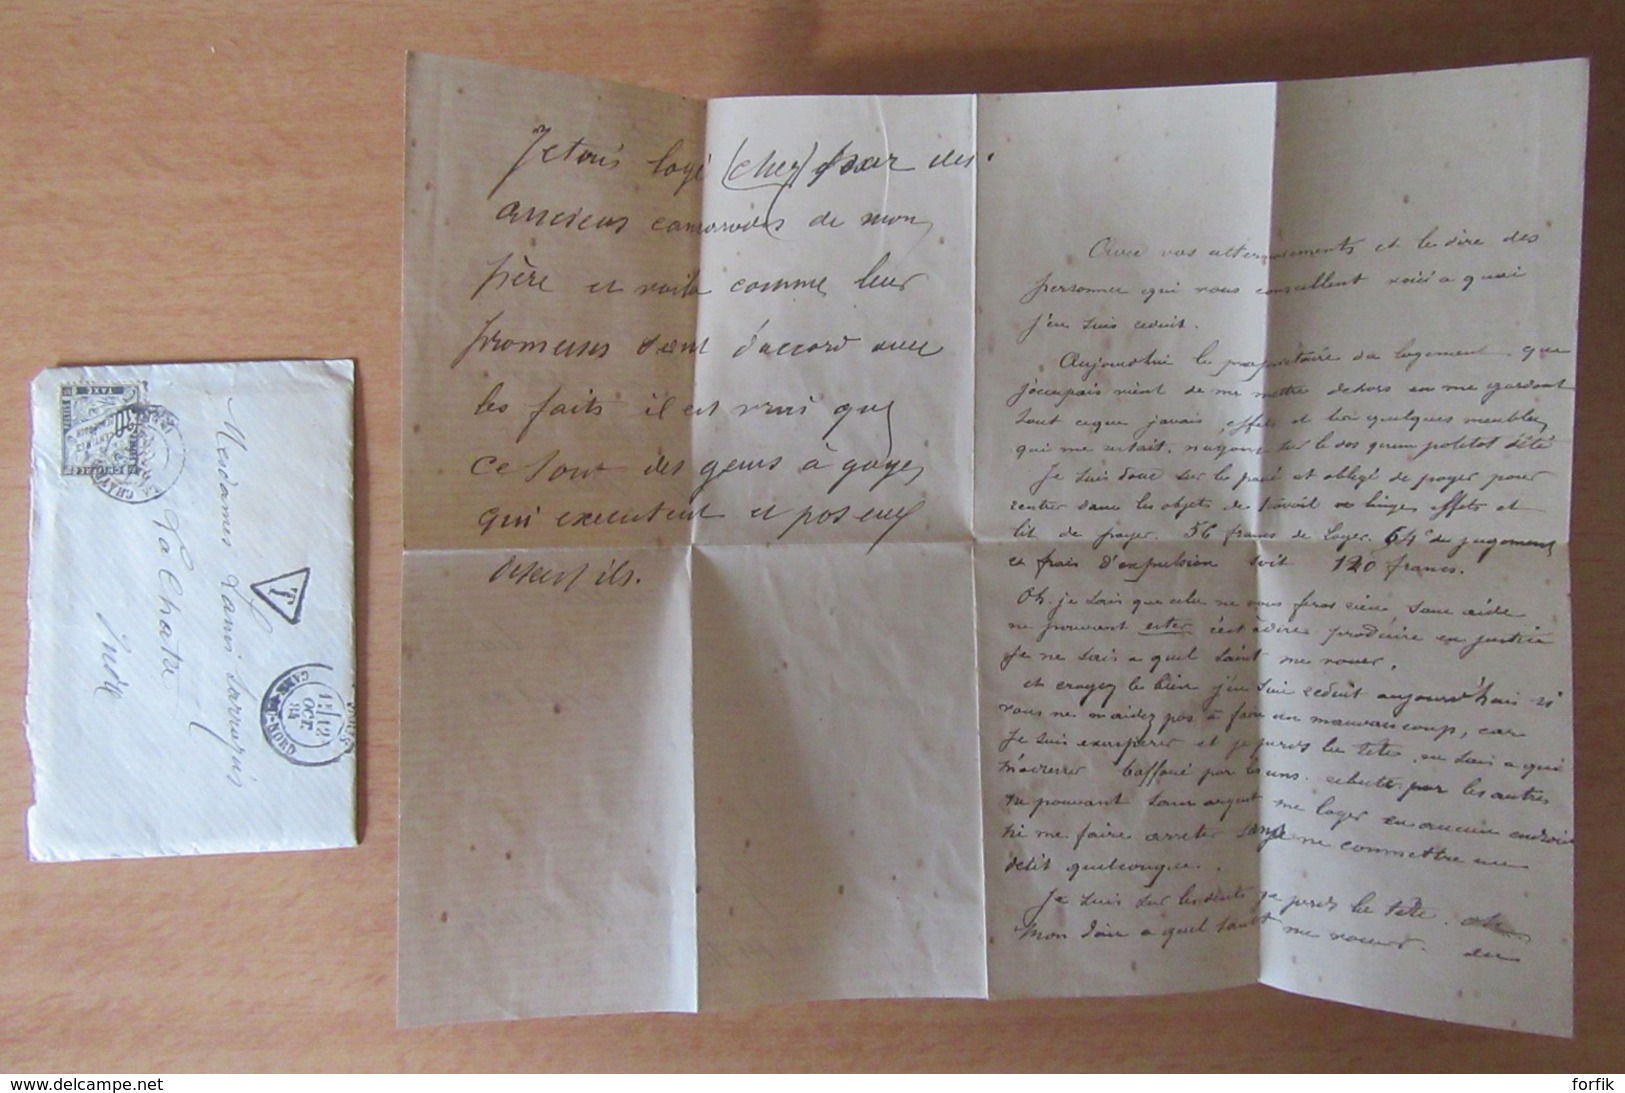 J'etais logé (chez) par des
anciens camarades de mon
père et voila comme leur
promesses sont d'accord avec
les faits il est vrai que
ce sont des gens à gages
qui executent et posent
ils.
Avec vos attermoiements et le dire des
personnes qui vous conseillent voici a quoi
j'en suis reduit.
Aujourdhui le propriétaire du logement que
j'occupais vient de me mettre dehors en me gardant
tout ce que javais, effets et lit quelques meubles
qui me restait, n'ayant sur le dos qu'un paletot d'été
Je suis donc sur le pavé et obligé de payer pour
rentrer dans les objets de travail ou linge, effets et
lit de payer. 56 francs de loyer. 64 de jugement
et frais d'expulsion soit 120 francs.
Oh. je sais que cela ne vous feras rien sans aide
ne pouvant ester c'est à dire produire en justice
Je ne sais a quel saint me vouer.
et croyez le bien j'en suis reduit aujourd'hui si
vous ne m'aidez pas à faire un mauvais coup, car
Je suis exasperer et je perds la tete, ne sais a qui
m'adresser baffoué par les uns. rebuté par les autres
ne pouvant sans argent me loger en aucun endroit
ni me faire arreter sans ne commettre un
delit quelconque.
Je suis sur les dents je perds la tete.
Mon dieu a quel saint me vouer.
Mesdames Sarrazais
La Chatre
Indre
T
PARIS
GARE DU NORD
OCT
84
LA CHATRE
10
CENTIMES
TAXE
www.delcampe.net
forfik